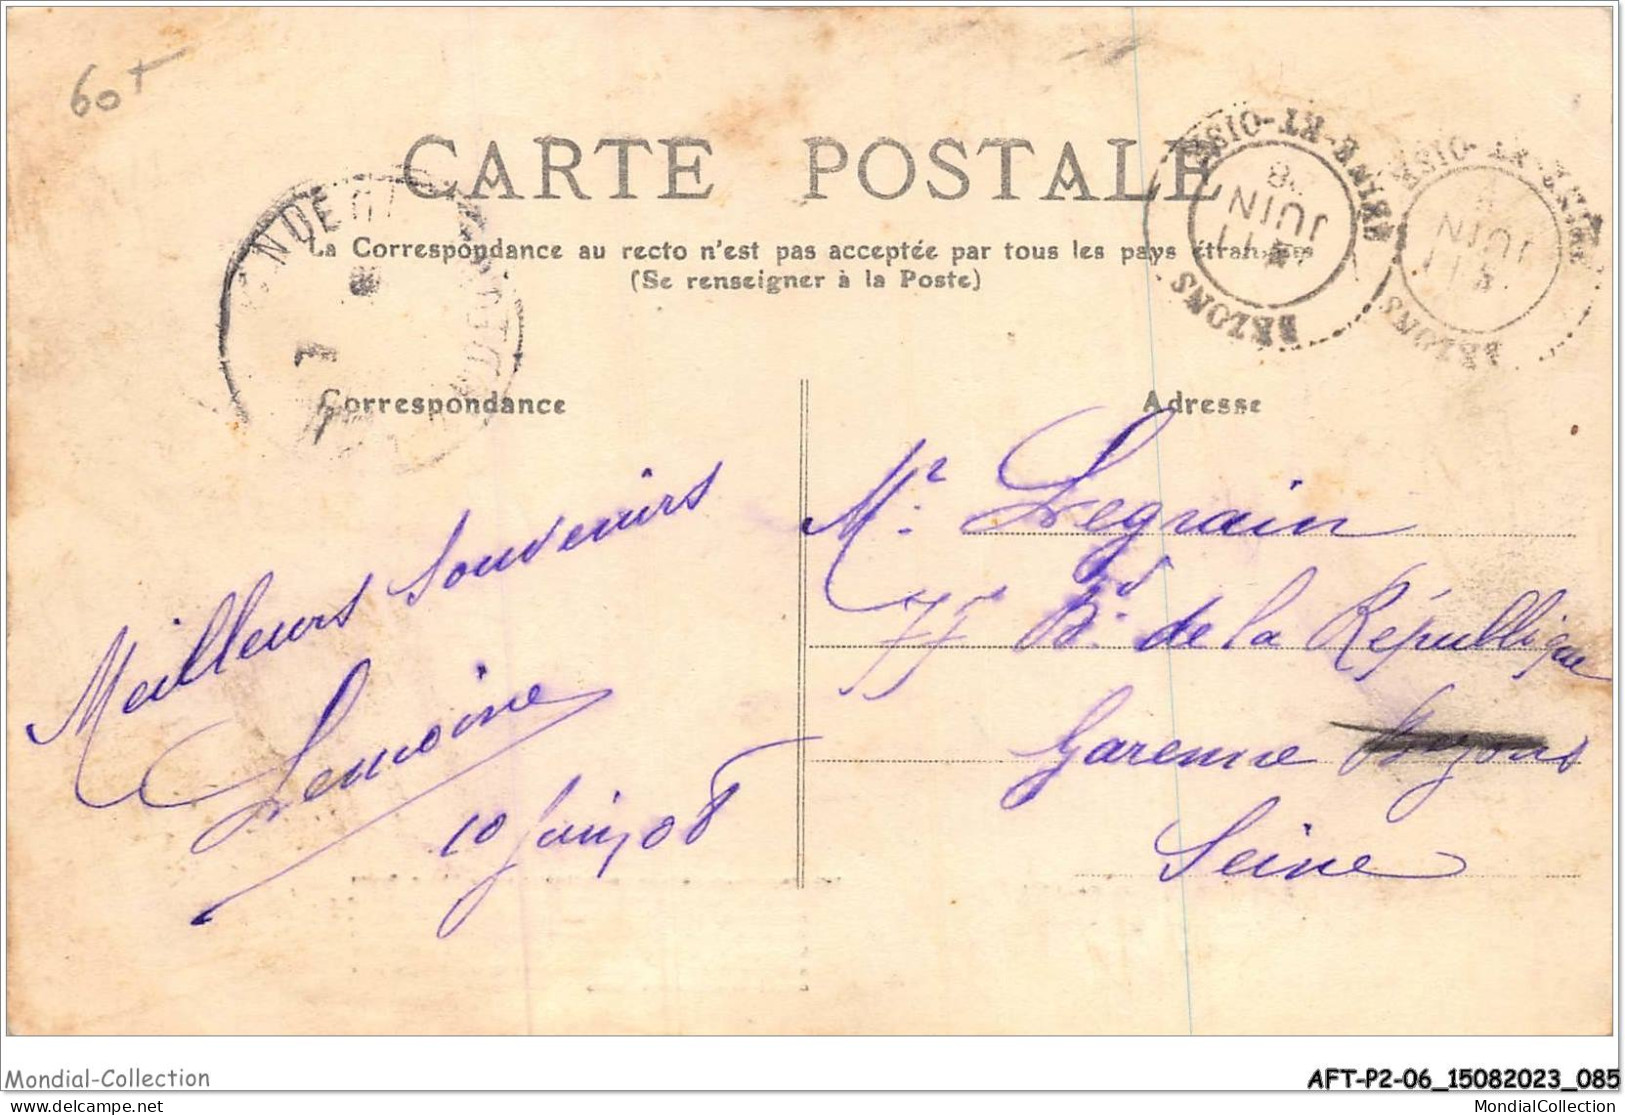 60+
CARTE POSTALE
La Correspondance au recto n'est pas acceptée par tous les pays étrangers
(Se renseigner à la Poste)
SEINE-ET-OISE
11
JUIN
08
BEZONS
SEINE-ET-OISE
11
JUIN
BEZONS
Correspondance
Meilleurs souvenirs
Lemoine
10 Juin, 08
Adresse
Mr. Legrain
77 Bd. de la République
Garenne Bezons
Seine
Mondial-Collection
delcampe.net
AFT-P2-06_15082023_085
MondialCollection